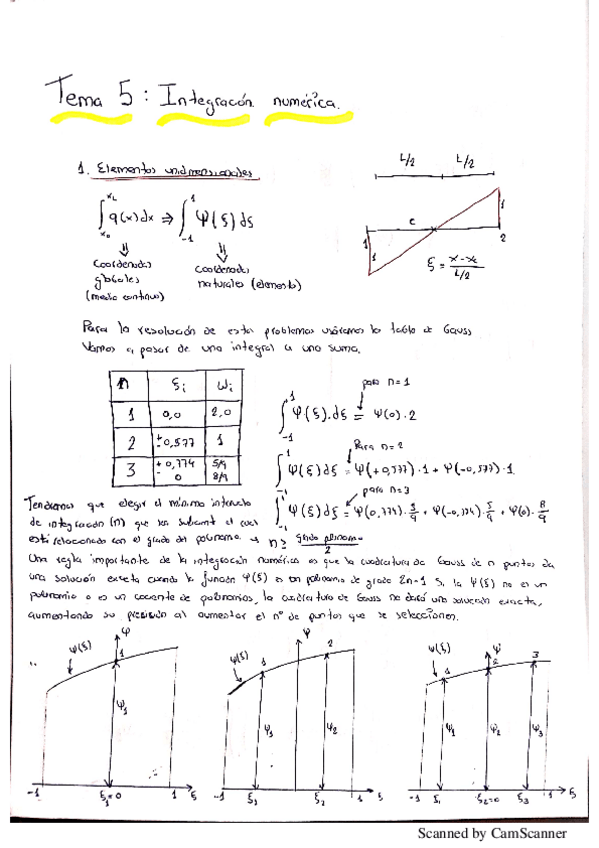 Tema 5: Integración numérica.
1. Elementos unidimensionales
L/2 L/2
∫ q(x)dx ⇒ ∫ Ψ(ξ)dξ
x₀ x_L -1 1
c
1 1 1 2
ξ = x-x_c / L/2
Coordenadas globales (medio continuo)
coordenadas naturales (elemento)
Para la resolución de estos problemas usaremos la tabla de Gauss
Vamos a pasar de una integral a una suma.
n ξi ωi
1 0,0 2,0
2 ±0,577 1
3 ±0,774 5/9
0 8/9
para n=1
∫ Ψ(ξ).dξ = Ψ(0)·2
Para n=2
∫ Ψ(ξ)dξ = Ψ(+0,577)·1 + Ψ(-0,577)·1
para n=3
∫ Ψ(ξ)dξ = Ψ(0,774)·5/9 + Ψ(-0,774)·5/9 + Ψ(0)·8/9
Tendremos que elegir el mínimo intervalo
de integración (n) que sea suficiente el cual
está relacionado con el grado del polinomio. → n ≥ grado polinomio / 2
Una regla importante de la integración numérica es que la cuadratura de Gauss de n puntos da
una solución exacta cuando la función Ψ(ξ) es un polinomio de grado 2n-1 Si la Ψ(ξ) no es un
polinomio o es un cociente de polinomios, la cuadratura de Gauss no dará una solución exacta,
aumentando su precisión al aumentar el nº de puntos que se seleccionen.
Ψ(ξ) Ψ 1 Ψ₁ -1 ξ₁=0 1 ξ
Ψ(ξ) Ψ 1 2 Ψ₁ Ψ₂ -1 ξ₁ ξ₂ 1 ξ
Ψ(ξ) Ψ 1 2 3 Ψ₁ Ψ₂ Ψ₃ -1 ξ₁ ξ₂=0 ξ₃ 1 ξ
Scanned by CamScanner